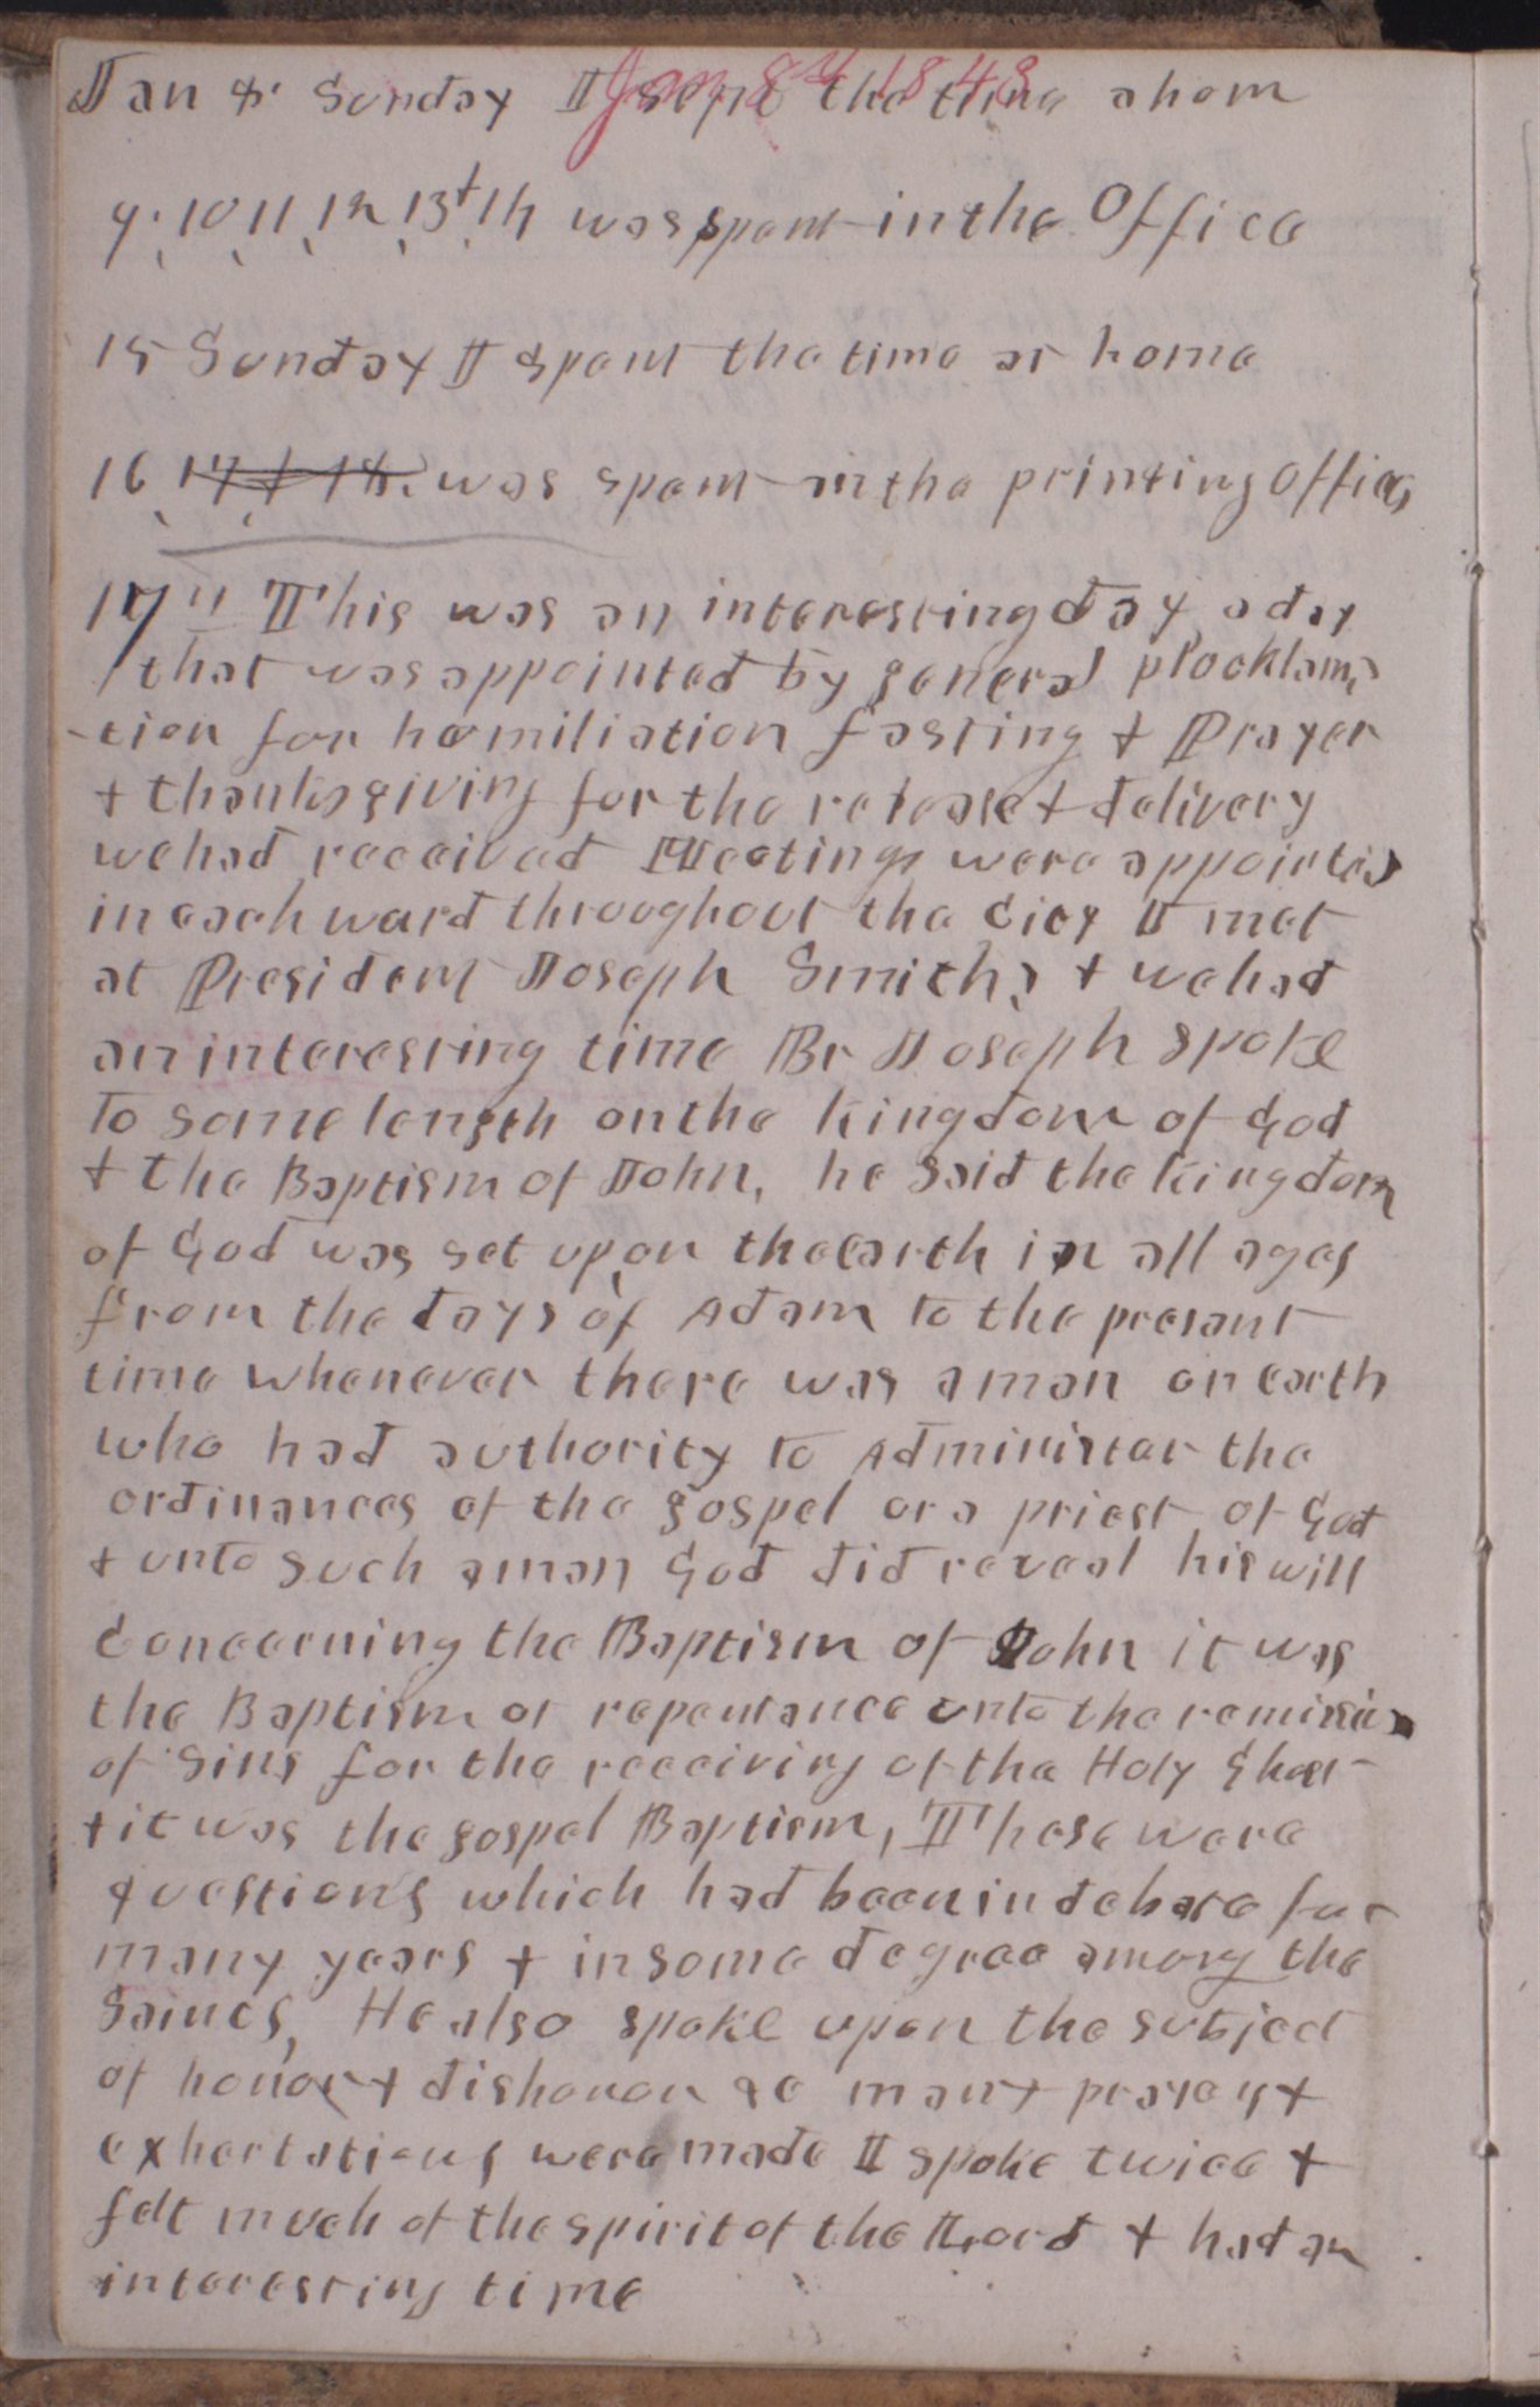 Jan 8th Sunday I spent the time ahom
Jan 8th 1843
9, 10, 11, 12, 13, + 14 was spent in the Office
15 Sunday I spent the time at home
16 17 + 18. was spent in the printing office
17th This was an interesting day, a day
that was appointed by general procklama
-tion for homiliation fasting + Prayer
+ thanksgiving for the release + delivery
we had received Meetings were appointed
in each ward throughout the city I met
at President Joseph Smiths + we had
an interesting time Br Joseph spoke
to some length on the kingdom of God
+ the Baptism of John, he said the kingdom
of God was set upon the earth in all ages
from the days of Adam to the present
time whenever there was a man on earth
who had authority to Administer the
ordinances of the gospel or a priest of God
+ unto such a man God did reveal his will
Concerning the Baptism of John it was
the Baptism of repentance unto the remission
of sins for the receiving of the Holy Ghost
+ it was the gospel Baptism, These were
questions which had been in debate for
many years + in some degree among the
Saints, He also spoke upon the subject
of honor + dishonor &c many prayers +
exhortations were made I spoke twice +
felt much of the spirit of the Lord + had an
interesting time